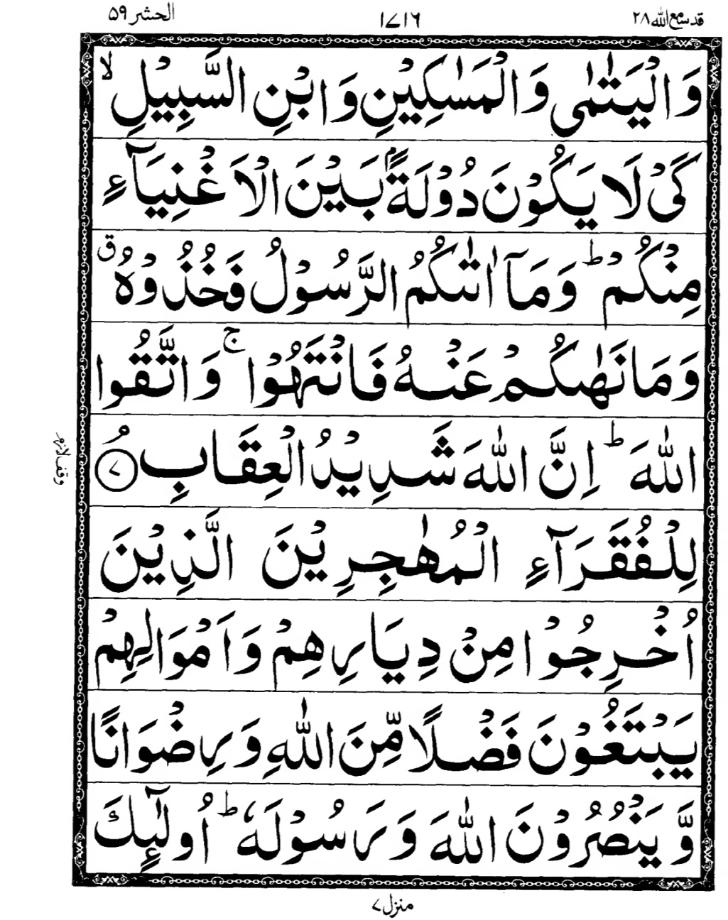 قد سمع الله ٢٨ ١٧١٦ الحشر ٥٩
وَالْيَتٰمٰى وَالْمَسٰكِيْنِ وَابْنِ السَّبِيْلِ ۙ
كَىْ لَا يَكُوْنَ دُوْلَةًۢ بَيْنَ الْاَغْنِيَآءِ
مِنْكُمْ ؕ وَمَاۤ اٰتٰىكُمُ الرَّسُوْلُ فَخُذُوْهُ ق
وَمَا نَهٰىكُمْ عَنْهُ فَانْتَهُوْا ۚ وَاتَّقُوا
اللّٰهَ ؕ اِنَّ اللّٰهَ شَدِيْدُ الْعِقَابِ ۘ ٧
وقف لازم
لِلْفُقَرَآءِ الْمُهٰجِرِيْنَ الَّذِيْنَ
اُخْرِجُوْا مِنْ دِيَارِهِمْ وَاَمْوَالِهِمْ
يَبْتَغُوْنَ فَضْلًا مِّنَ اللّٰهِ وَرِضْوَانًا
وَّيَنْصُرُوْنَ اللّٰهَ وَرَسُوْلَهٗ ؕ اُولٰٓئِكَ
منزل ٧